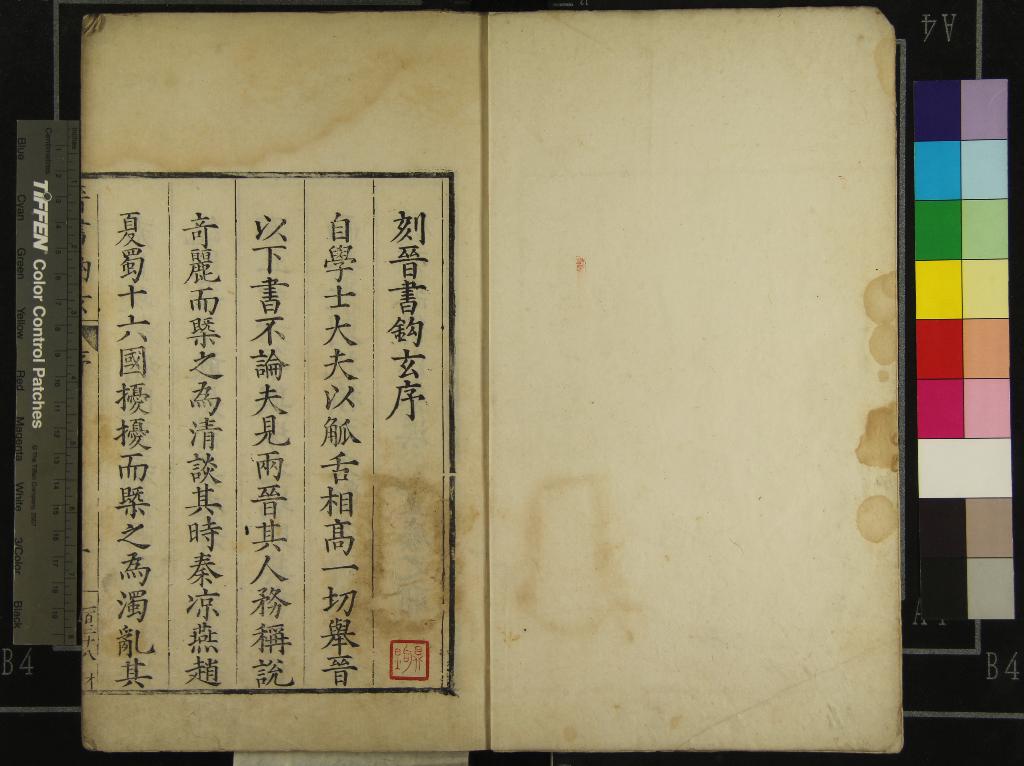 刻晉書鈎玄序
自學士大夫以觚舌相高一切舉晉
以下書不論夫見兩晉其人務稱説
竒麗而槩之為清談其時秦凉燕趙
夏蜀十六國擾擾而槩之為濁亂其
序
一百三十八
A4
B4
B4
TIFFEN Color Control Patches
© The Tiffen Company, 2007
Centimetres
Inches
Blue
Cyan
Green
Yellow
Red
Magenta
White
3/Color
Black